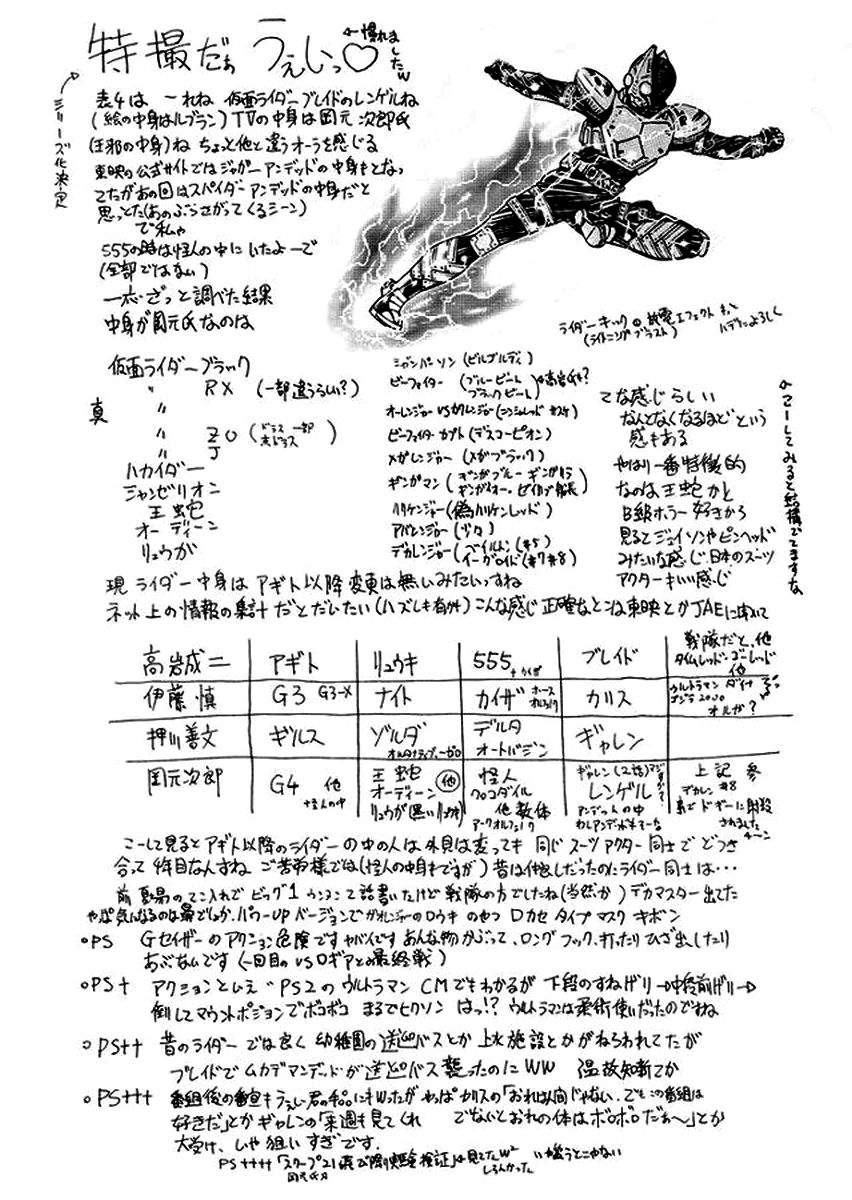 特撮だぁ うぇしっ♡
←慣れましたw
シリーズ化決定
表4は 〜れね 仮面ライダーブレイドのレンゲルね
(絵の中身はルブラン) TVの中身は岡元 次郎氏
(王邪の中身)ね ちょっと他と違うオーラを感じる
東映の公式サイトではジャガーアンデッドの中身もとなっ
てたがあの回はスパイダーアンデッドの中身だと
思っとた(あのぶらさがってくるシーン)
で私ゃ
555の時は怪人の中にいたよーで
(全部ではない)
一応ざっと調べた結果
中身が岡元氏なのは
ライダーキックの放電エフェクト
(ライトニングブラスト)
ハデによろしく
仮面ライダーブラック
〃 RX (一部違うらしい?)
真 〃
〃 ZO (ドラス一部)
〃 J
ハカイダー
シャンゼリオン
王蛇
オーディーン
リュウガ
ジャンパーソン(ビルゴルディ)
ビーファイター (ブルービート ブラックビート) ←高岩氏も?
オーレンジャーVSカクレンジャー(ニンジャレッド
ビーファイターカブト(デスコーピオン)
メガレンジャー (メガブラック)
ギンガマン (ギンガブルー ギンガイオー
ハリケンジャー(偽ハリケンレッド)
アバレンジャー(少々)
デカレンジャー(ベイルドン(#5) イーガロイド(#7#8)
てな感じらしい
なんとなくなるほどという
感もある
やはり一番特徴的
なのは王蛇かと
B級ホラー好きから
見るとジェイソンやピンヘッド
みたいな感じ。日本のスーツ
アクターもいい感じ
←こーしてみると結構でてますな
現ライダー中身はアギト以降変更は無いみたいっすね
ネット上の情報の集計だとだいたい(ハズレも有料) こんな感じ 正確なとこは東映とかJAEに聞いて
高岩成二 アギト リュウキ 555 +カイザ ブレイド 戦隊だと、他 タイムレッド・ゴーレッド 他
伊藤 慎 G3 G3-X ナイト カイザ ホースオルフェノク カリス ウルトラマンダイナ ゴジラ2000 オルガ?
押川善文 ギルス ゾルダ オルタナティブ・ゼロ デルタ オートバジン ギャレン
岡元次郎 G4 他 +怪人の中 王蛇 オーディーン リュウガ(黒いリュウキ) 他 怪人 クロコダイル 他数体 アークオルフェノク ギャレン(2話) レンゲル アンデットの中 上記参 デカレン#8 ドギーに射殺されました
こーして見るとアギト以降のライダーの中の人は外見は変っても 同じスーツアクター同士でどつき
合って4年目なんすね ご苦労様では(怪人の中身もですが) 昔は仲良しだったのにライダー同士は…
前 夏易のてこ入れでビッグ1ウンヌンて話書いたけど 戦隊の方でしたね(当然か) デカマスター出てた
やっぱ気になるのは暴でしょか、パワーUPバージョンでガオレンジャーのロウキのやつ ロカセタイプマスクキボン
○PS Gセイザーのアクション危険ですヤバイです あんな物かぶって、ロングフック、打ったりひざ出したり
あぶないです(一回目のvsロギアとの最終戦)
○PS+ アクションといえば PS2のウルトラマンCMでもわかるが 下段のすねげり→中段前げり→
倒してマウントポジョンでボコボコ まるでヒクソン はっ!? ウルトラマンは柔術使いだったのですね
○PS++ 昔のライダーでは良く 幼稚園の送迎バスとか 上水施設とかがねらわれてたが
ブレイドでムカデアンデッドが送迎バス襲ったのにWW 温故知新てか
○PS+++ 番組後の番宣もうぇぃ君のチ。にもワッたが やっぱカリスの「おれは人間じゃない、でもこの番組は
好きだ」とかギャレンの「来週も見てくれ でないとおれの体はボロボロだぁ〜」とか
大受け、しゃ狙いすぎです。